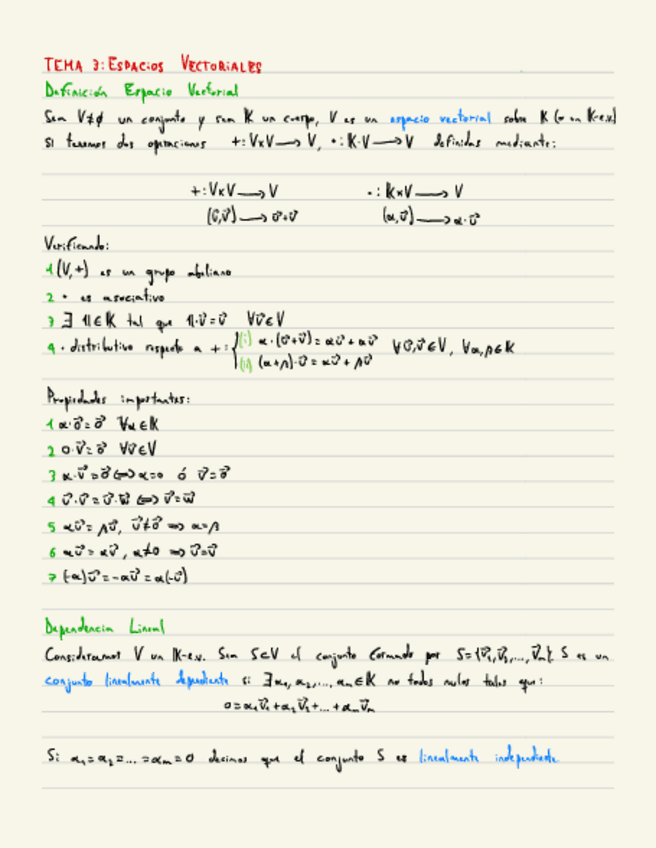 TEMA 3: ESPACIOS VECTORIALES
Definición Espacio Vectorial
Sea V≠∅ un conjunto y sea K un cuerpo, V es un espacio vectorial sobre K (o un K-e.v.)
si tenemos dos operaciones +: V×V → V, •: K·V → V definidas mediante:
+: V×V → V    •: K×V → V
(u⃗,v⃗) → u⃗+v⃗    (α,v⃗) → α·v⃗
Verificando:
1 (V,+) es un grupo abeliano
2 • es asociativo
3 ∃ 1∈K tal que 1·v⃗=v⃗ ∀v⃗∈V
4 • distributivo respecto a +: { (i) α·(u⃗+v⃗)=αu⃗+αv⃗ ∀u⃗,v⃗∈V, ∀α,β∈K
(ii) (α+β)·v⃗=αv⃗+βv⃗
Propiedades importantes:
1 α·0⃗=0⃗ ∀α∈K
2 0·v⃗=0⃗ ∀v⃗∈V
3 α·v⃗=0⃗ ⟺ α=0 ó v⃗=0⃗
4 v⃗=w⃗
5 αv⃗=βv⃗, v⃗≠0⃗ ⟹ α=β
6 αu⃗=αv⃗, α≠0 ⟹ u⃗=v⃗
7 (-α)v⃗=-αv⃗=α(-v⃗)
Dependencia Lineal
Consideramos V un K-e.v. Sea S⊂V el conjunto formado por S={v⃗₁,v⃗₂,...,v⃗ₘ}. S es un
conjunto linealmente dependiente si ∃α₁,α₂,...,αₘ∈K no todos nulos tales que:
0=α₁v⃗₁+α₂v⃗₂+...+αₘv⃗ₘ
Si α₁=α₂=...=αₘ=0 decimos que el conjunto S es linealmente independiente.